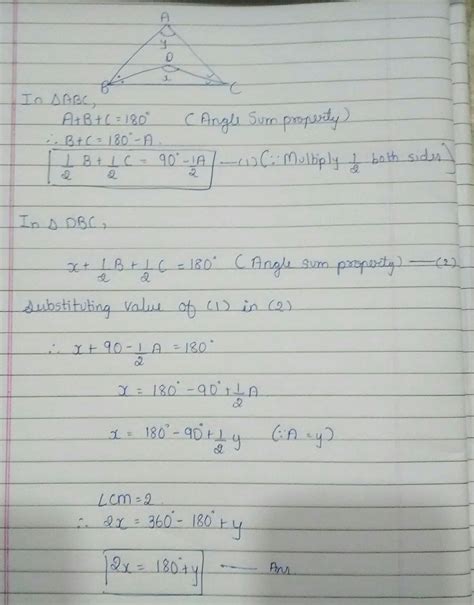 A
y
D
x
B C
In ΔABC,
A+B+C = 180° (Angle Sum property)
∴ B+C = 180°-A.
1/2 B + 1/2 C = 90° - 1/2 A —(1) (∵ Multiply 1/2 both sides)
In Δ DBC,
x + 1/2 B + 1/2 C = 180° (Angle sum property) —(2)
Substituting value of (1) in (2)
∴ x + 90 - 1/2 A = 180°
x = 180° - 90° + 1/2 A
x = 180° - 90° + 1/2 y (∵ A = y)
LCM = 2
∴ 2x = 360° - 180° + y
2x = 180° + y — Ans